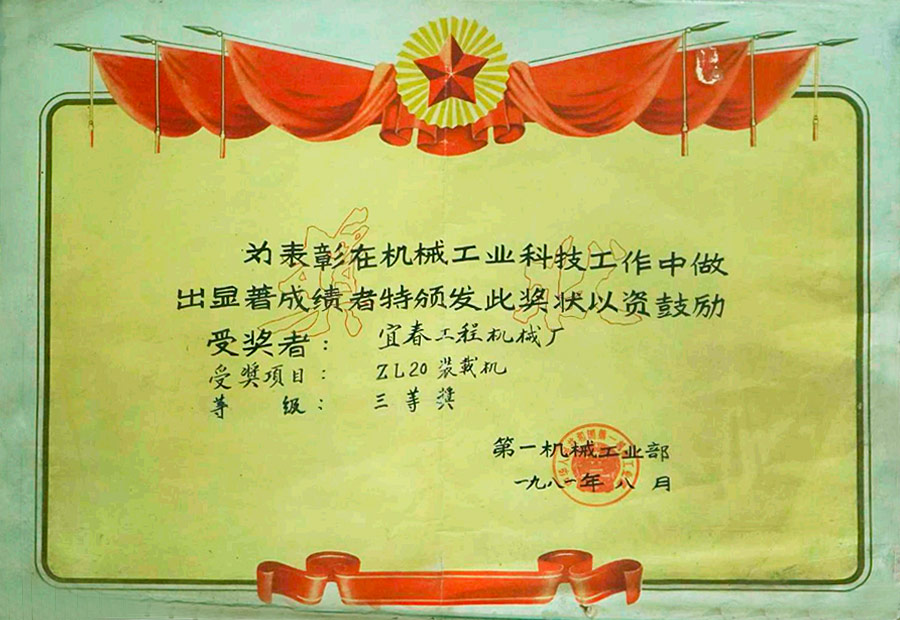 奖状
为表彰在机械工业科技工作中做
出显著成绩者特颁发此奖状以资鼓励
受奖者：宜春工程机械厂
受奖项目：ZL20装载机
等级：三等奖
第一机械工业部
一九八一年八月